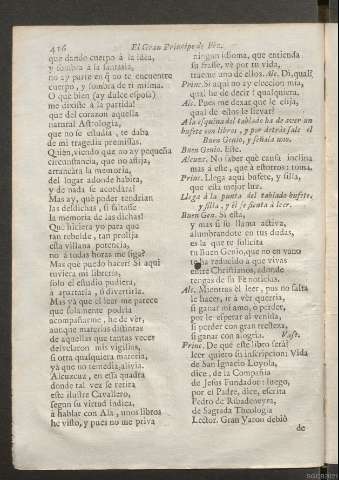 416 El Gran Principe de Fez.
que dando cuerpo à la idea,
y sombra à la fantasia,
no ay parte en q̃ no te encuentre
cuerpo, y sombra de ti misma.
O què bien (ay dulce esposa)
me dixiste à la partida!
que del corazon aquella
natural Astrologia,
que no se estudia, te daba
de mi tragedia premissas.
Quien, viendo que no ay pequeña
circunstancia, que no aflija,
arrancàra la memoria,
del lugar adonde habita,
y de nada se acordàra!
Mas ay, què poder tendrian
las desdichas, si faltasse
la memoria de las dichas!
Què hiciera yo para que
tan rebelde, tan prolija
esta villana potencia,
no à todas horas me siga?
Mas què puedo hacer? Si aqui
tuviera mi libreria,
solo el estudio pudiera,
à apartarla, ò divertirla.
Mas yà que el leer me parece
que solamente podria
acompañarme, he de vèr,
aunque materias distintas
de aquellas que tantas veces
desvelaron mis vigilias,
si otra qualquiera materia,
yà que no remedia, alivia.
Alcuzcuz, en essa quadra
donde tal vez se retira
este ilustre Cavallero,
segun su virtud indica,
à hablar con Alà, unos libros
he visto, y pues no me priva
ningun idioma, que entienda
su frasse, vè por tu vida,
traeme uno de ellos. Alc. Di, qual?
Princ. Si aqui no ay eleccion mia,
qual he de decir? qualquiera.
Alc. Pues me dexar que le elija,
qual de ellos le llevar?
A la esquina del tablado ha de aver un
bufete con libros, y por detràs sale el
Buen Genio, y señala uno.
Buen Genio. Este.
Alcuzc. No saber què causa inclina
mas à este, que à estotros: toma.
Princ. Llega aqui bufete, y silla,
que està mejor luz.
Llega à la punta del tablado bufete,
y silla, y èl se sienta à leer.
Buen Gen. Si està,
y mas si su llama activa,
alumbrandote en tus dudas,
es la que te solicita
tu Buen Genio, que no en vano
reducido a que vivas
entre Christianos, adonde
tengas de su Fè noticias.
Alc. Mientras èl leer, pus no salta
le hacer, ir à vèr querria,
si ganar mi amo, o perder,
por le respetar al venida,
si perder con gran tresteza,
si ganar con alogria. Vase.
Princ. De què este libro serà?
leer quiero su inscripcion: Vida
de San Ignacio Loyola,
dice, de la Compañia
de Jesus Fundador: luego,
por el Padre, dice, escrita
Pedro de Ribadeneyra,
de Sagrada Theologia
Lector. Gran Varon debiò
de